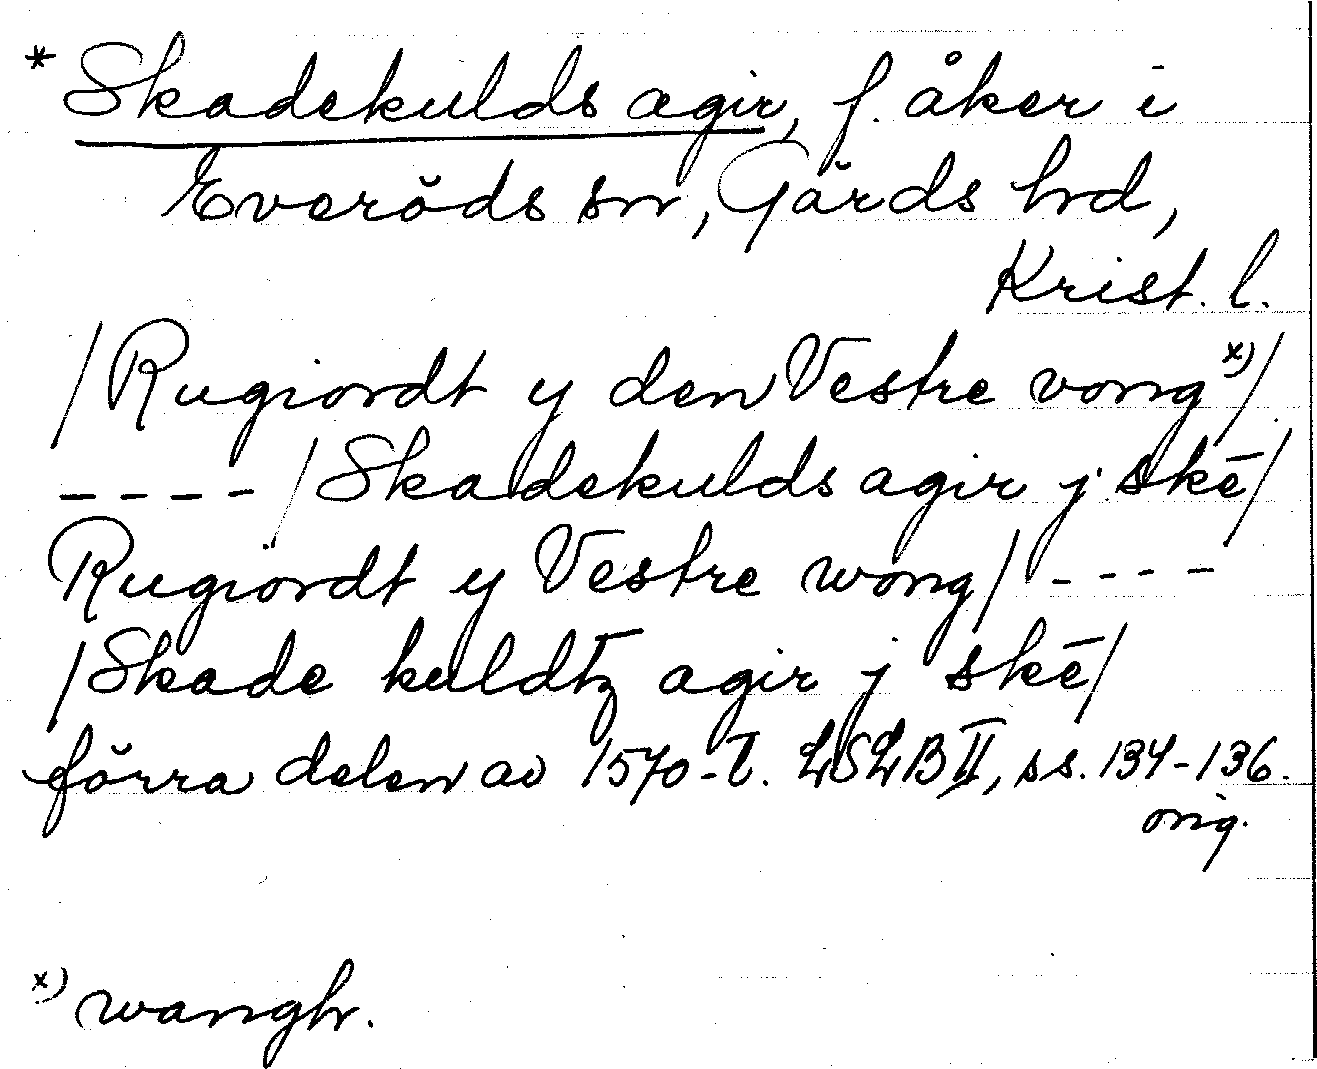 * Skadekulds agir, f. åker i
Everöds sn, Gärds hrd,
Krist. l.
/Rugiordt y den Vestre vong x)/
- - - - /Skadekulds agir j skē/
Rugiördt y Vestre wong/ - - - -
/Skade kuldtz agir j skē/
förra delen av 1570-t. LSLB II, ss. 134-136.
orig.
x) wangh.